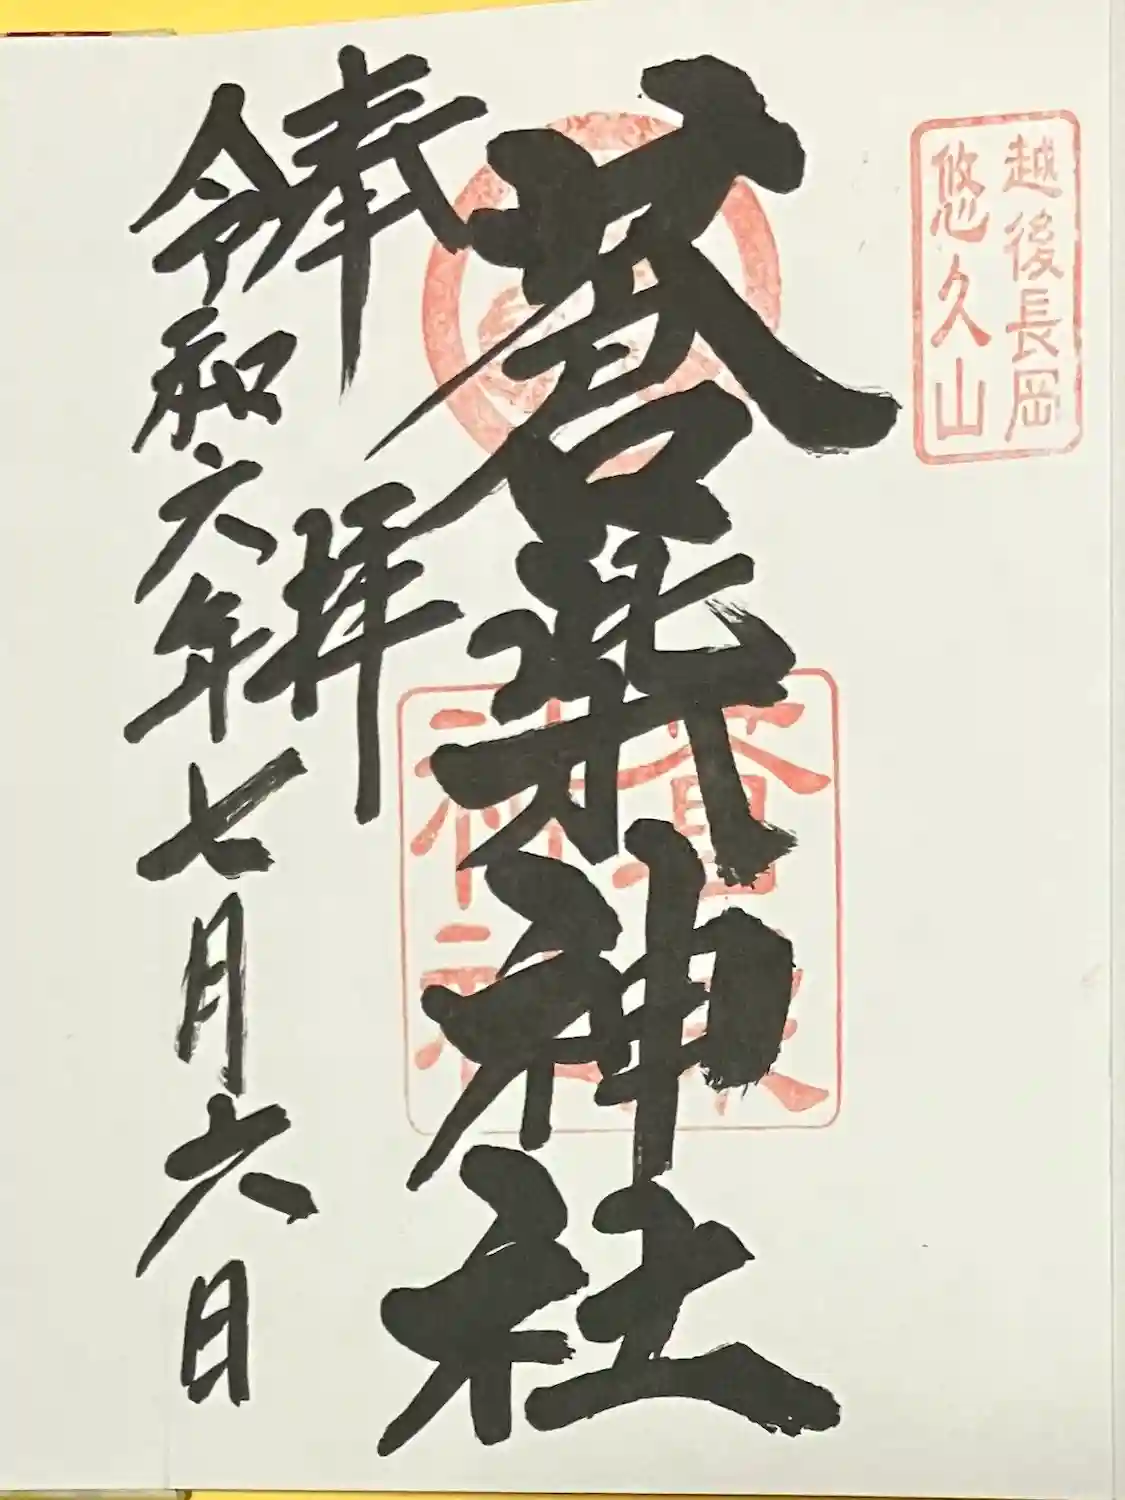 越後長岡
悠久山
蒼柴神社
蒼柴
神社
奉拝
令和六年七月六日